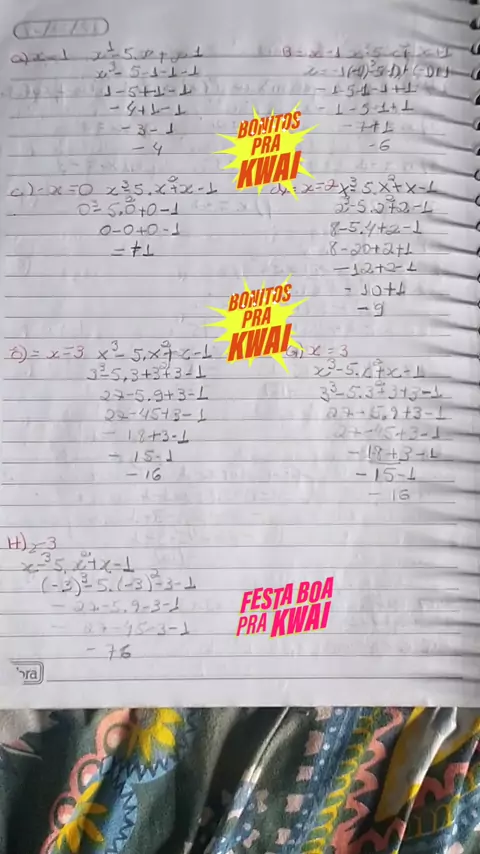 a) x=1 x³-5.x²+x-1
x³-5-1-1-1
1-5+1-1
-4+1-1
-3-1
-4
-1-5-1+1
-6
BONITOS
PRA
KWAI
c)-x=0 x³-5.x²+x-1
0³-5.0²+0-1
0-0+0-1
x=2 x³-5.x²+x-1
2³-5.2²+2-1
8-5.4+2-1
8-20+2+1
-12+2-1
-10+1
-9
BONITOS
PRA
KWAI
= x=3 x³-5.x²+x-1
3³-5.3²+3-1
27-5.9+3-1
27-45+3-1
-18+3-1
-15-1
-16
x=3
x³-5.x²+x-1
3³-5.3²+3+3-1
27-5.9+3-1
27-45+3-1
-18+3-1
-15-1
-16
H)=-3
x³-5.x²+x-1
(-3)³-5.(-3)²-3-1
-27-5.9-3-1
-27-45-3-1
-76
FESTA BOA
PRA KWAI